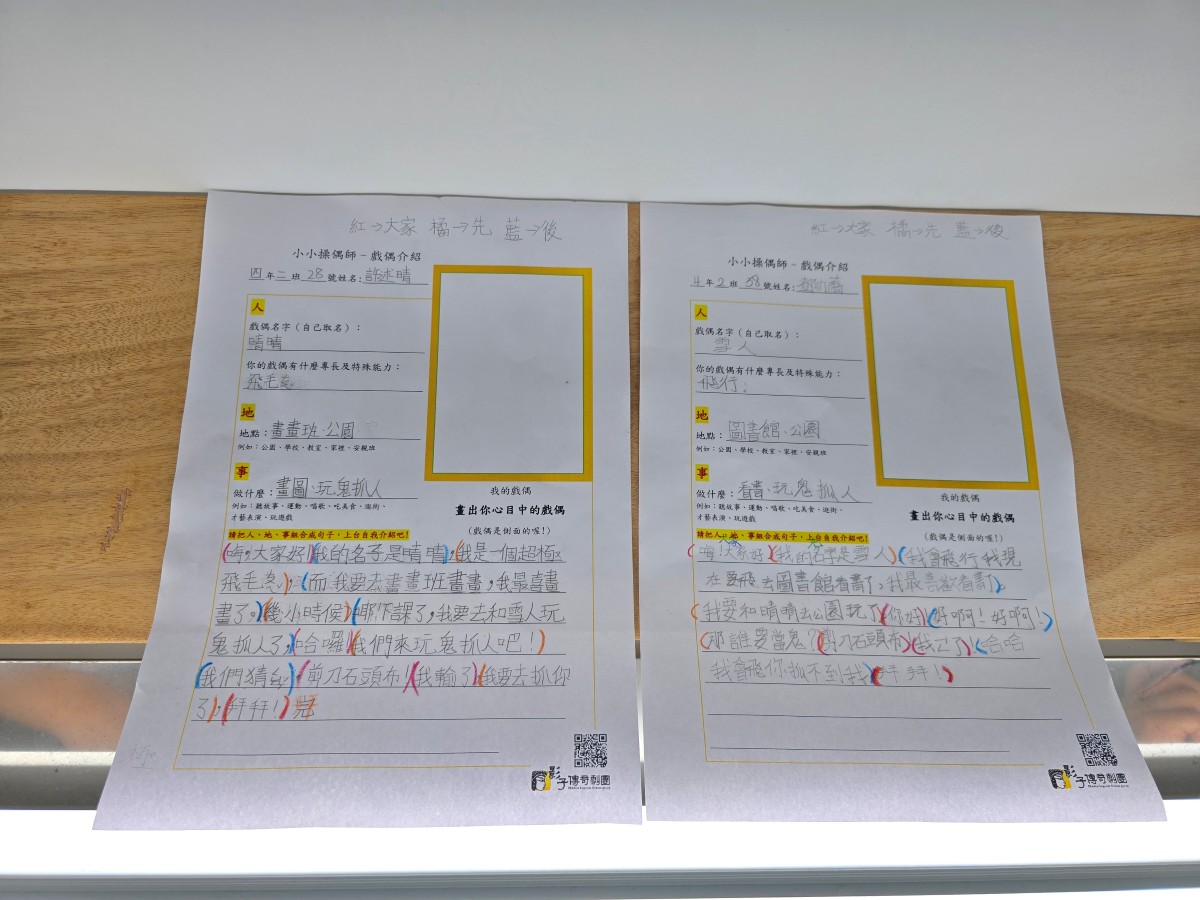 紅→大家 橘→先 藍→後
小小操偶師-戲偶介紹
四年二班28號姓名:許述晴
人
戲偶名字(自己取名):
晴晴
你的戲偶有什麼專長及特殊能力:
飛毛
地
地點:畫畫班、公園
例如:公園、學校、教室、家裡、安親班
事
做什麼:畫圖、玩鬼抓人
例如:聽故事、運動、唱歌、吃美食、逛街、
才藝表演、玩遊戲
我的戲偶
畫出你心目中的戲偶
(戲偶是側面的喔!)
請把人、地、事組合成句子,上台自我介紹吧!
(嗨,大家好)(我的名子是晴晴),(我是一個超極
飛毛)。(而我要去畫畫班畫畫,我最喜畫
畫了。)(幾小時候)(耶下課了,我要去和雪人玩
鬼抓人了,)(哈囉)(我們來玩鬼抓人吧!)
(我們猜)(剪刀石頭布!)(我輸了)(我要去抓你
了,)(拜拜!)完
影子傳奇劇團
紅→大家 橘→先 藍→後
小小操偶師-戲偶介紹
4年2班38號姓名:
人
戲偶名字(自己取名):
雪人
你的戲偶有什麼專長及特殊能力:
飛行
地
地點:圖書館、公園
例如:公園、學校、教室、家裡、安親班
事
做什麼:看書、玩鬼抓人
例如:聽故事、運動、唱歌、吃美食、逛街、
才藝表演、玩遊戲
我的戲偶
畫出你心目中的戲偶
(戲偶是側面的喔!)
請把人、地、事組合成句子,上台自我介紹吧!
(嗨!大家好)(我的名字是雪人)(我會飛行我現
在要飛去圖書館看書了,我最喜歡看書了)
(我要和晴晴去公園玩了)(你好)(好啊!好啊!)
(那誰要當鬼?)(剪刀石頭布)(我了)(哈哈
我會飛你抓不到我)(拜拜!)
影子傳奇劇團